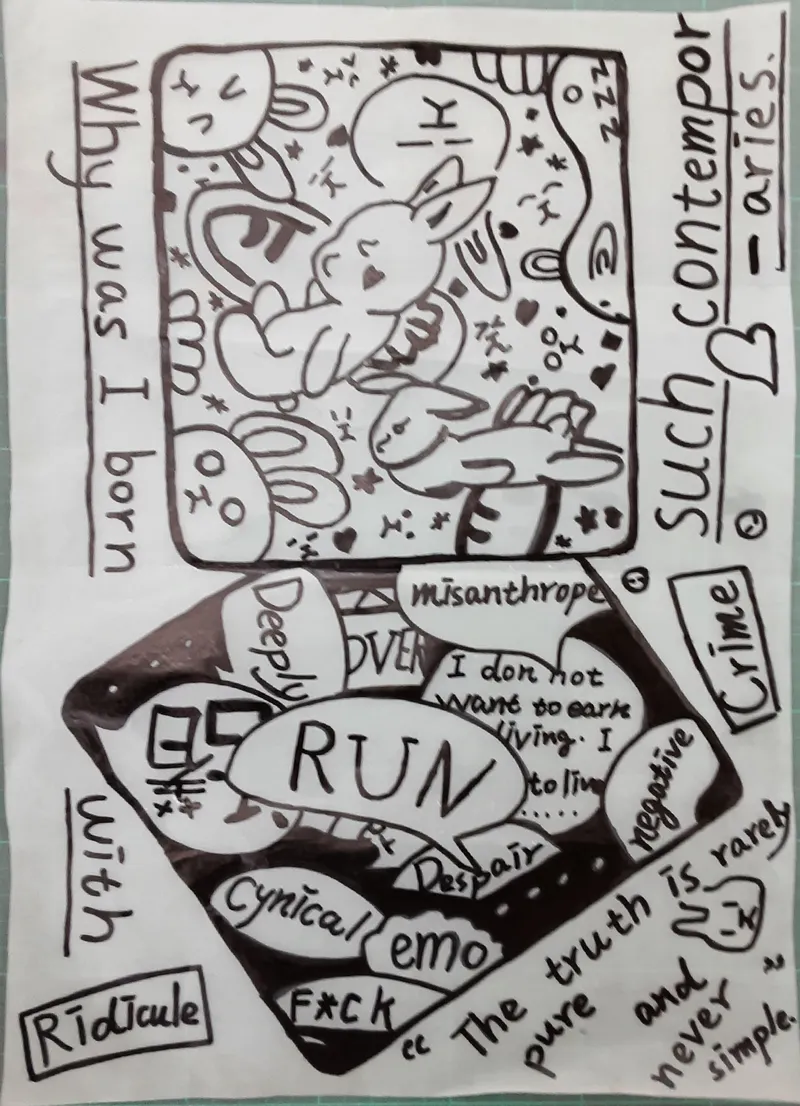 Why was I born
with
such contempor
-aries.
zzz
misanthrope
Deeply
OVER
I don not
want to earn
living. I
to live
.....
RUN
negative
Despair
Cynical
emo
F*CK
Crime
Ridicule
"The truth is rarely
pure and
never
simple."